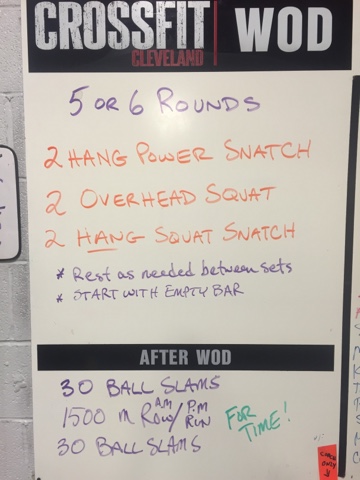 CROSSFIT WOD
CLEVELAND
5 OR 6 ROUNDS
2 HANG POWER SNATCH
2 OVERHEAD SQUAT
2 HANG SQUAT SNATCH
* Rest as needed between sets
* START WITH EMPTY BAR
AFTER WOD
30 BALL SLAMS
1500 m ROW A.M / P.M RUN FOR TIME!
30 BALL SLAMS